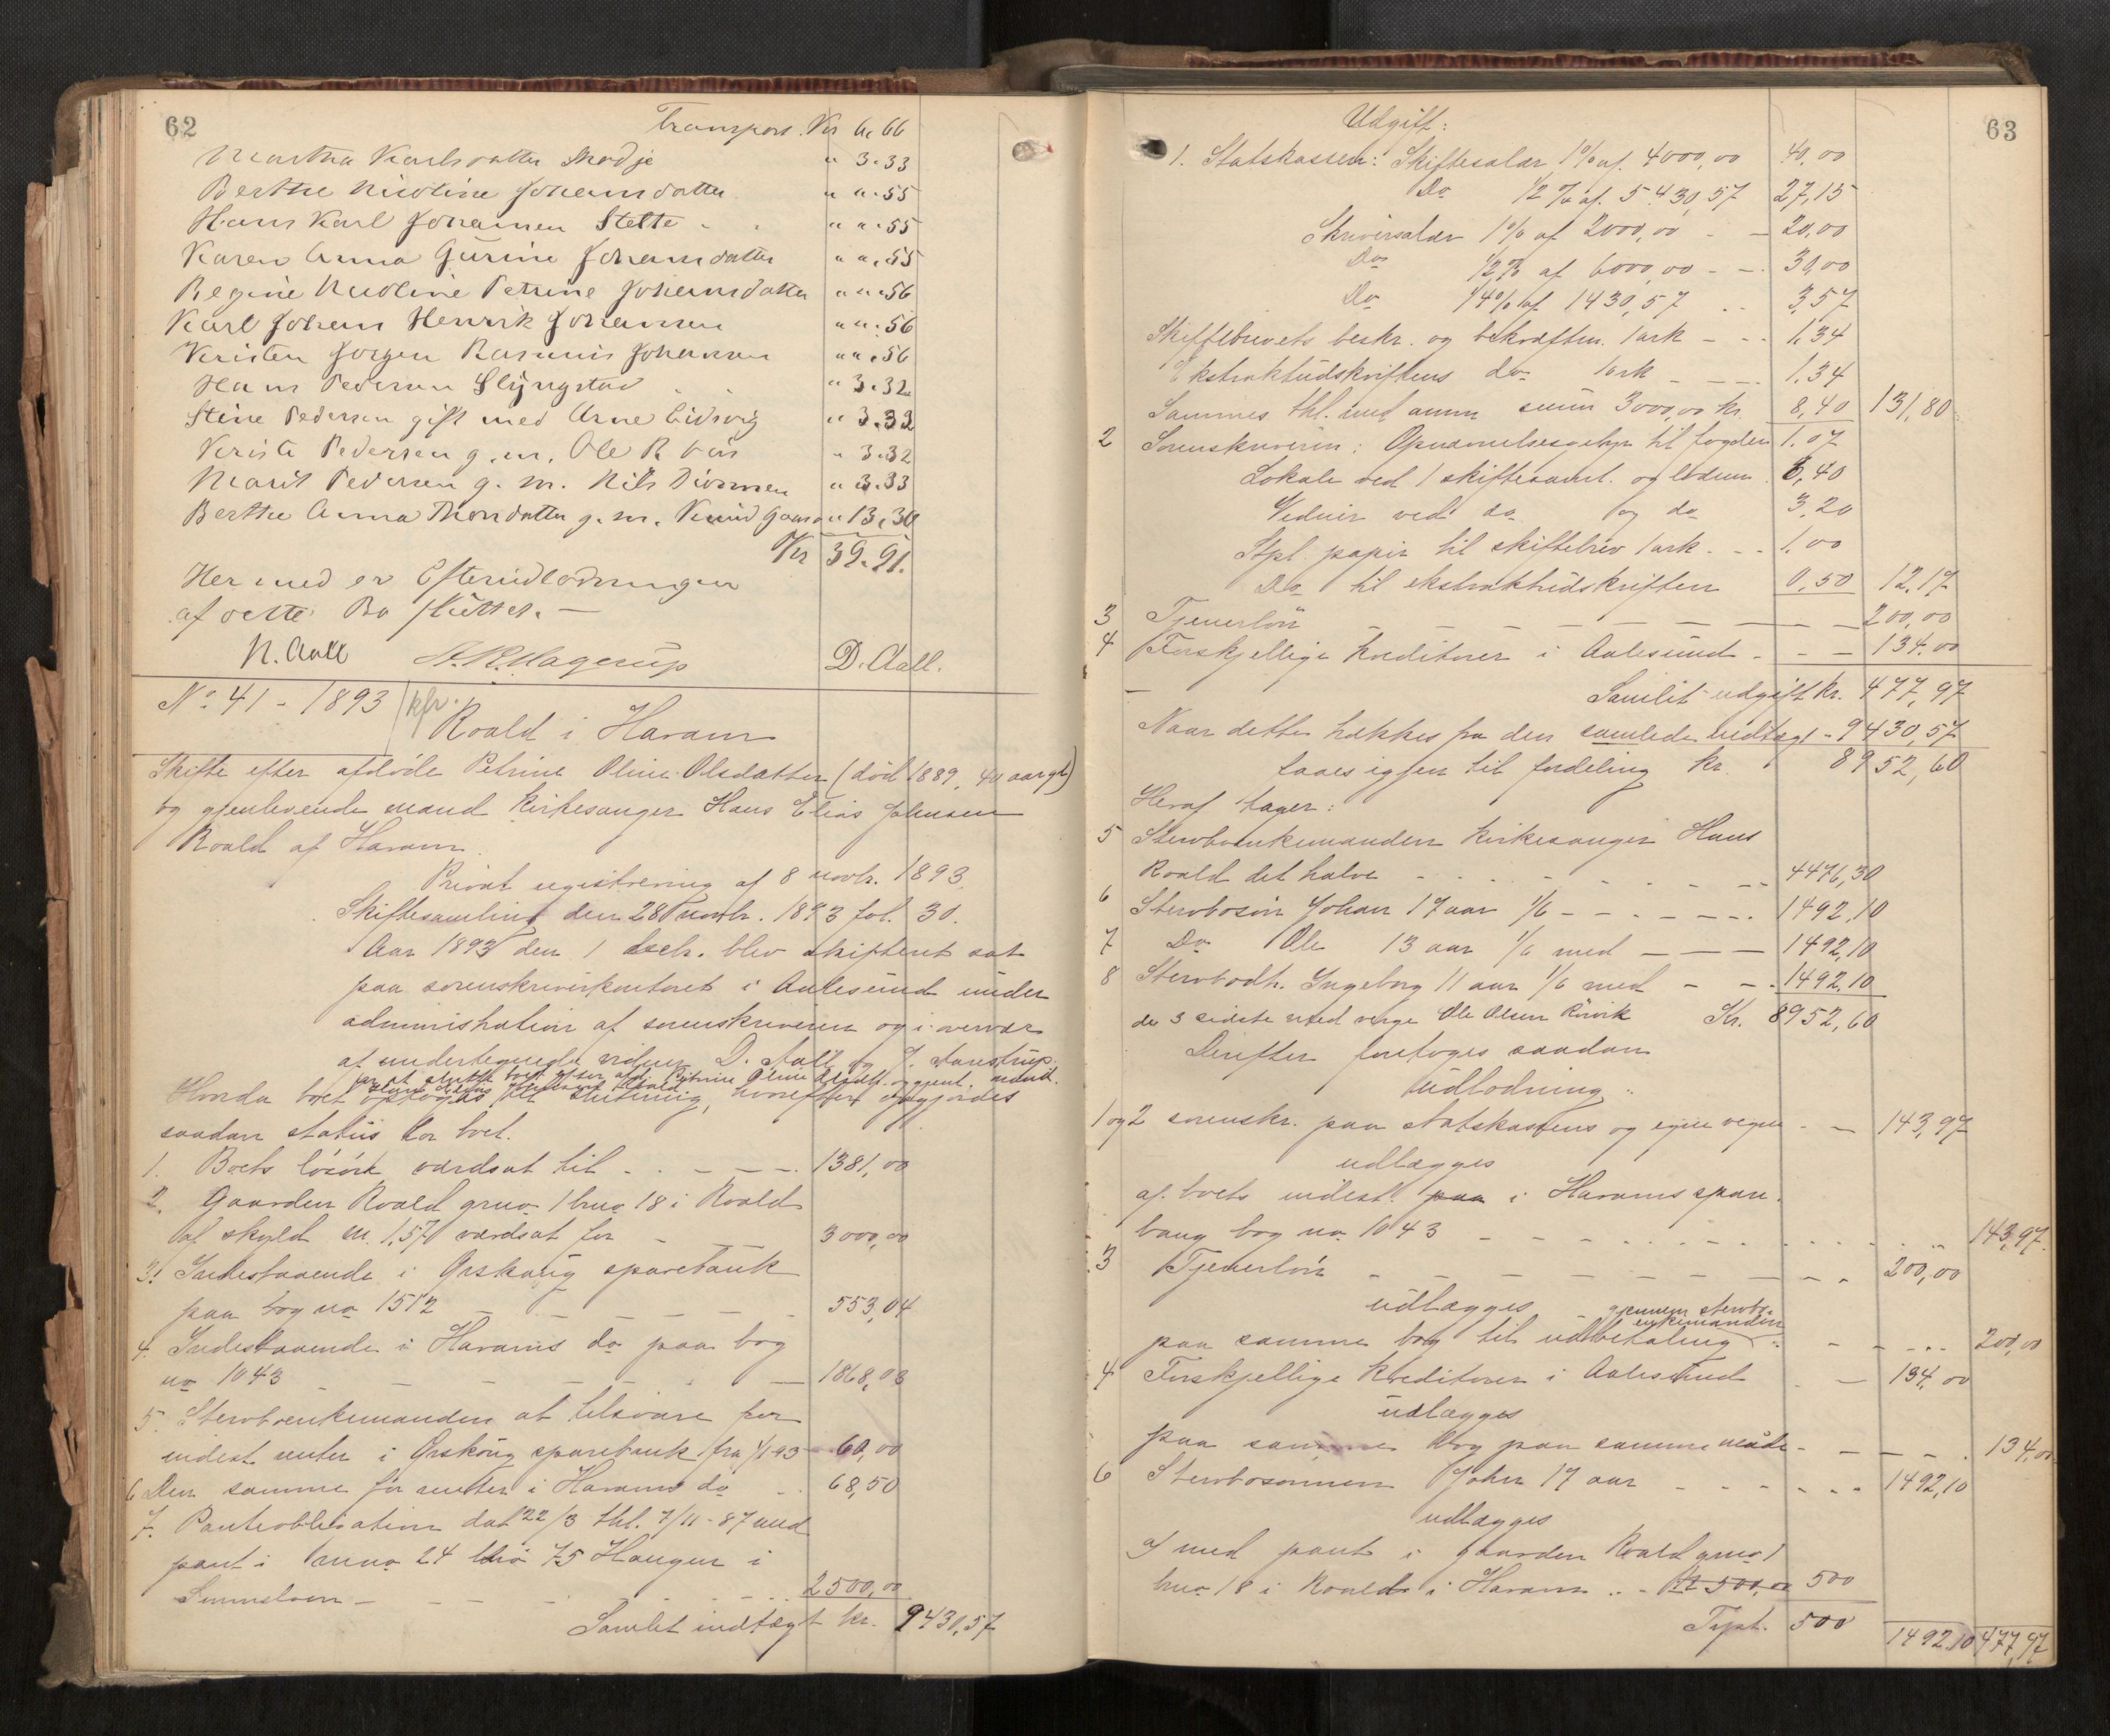 62
Transport. Kr 6.66
Martha Karlsdatter Skodje " 3.33
Berthe Nicoline Johansdatter " ".55
Hans Karl Johansen Stette " ".55
Karen Anna Gurine Johansdatter " ".55
Regine Nicoline Petrine Johansdatter " ".56
Karl Johan Henrik Johansen " ".56
Kristen Jørgen Rasmus Johansen " ".56
Hans Pedersen Slyngstad " 3.32
Stine Pedersen gift med Arne Eidsvig " 3.33
Kristi Pedersen g.m. Ole R. " 3.32
Marit Pedersen g.m. Nils " 3.33
Berthe Anna g.m. Knud " 13.30
Kr 39.91.
Hermed er Efterudlodningen
af dette Bo sluttet. —
N. Aall H.R. Hagerup D. Aall.
No. 41 - 1893 kfr.
Roald i Haram
Skifte efter afdøde Petrine Oline Olsdatter (død 1889, 40 aar gl)
og gjenlevende mand kirkesanger Hans Elias Johnsen
Roald af Haram.
Privat registrering af 8 novbr. 1893.
Skiftesamling den 28 novbr. 1893 fol. 30.
Aar 1893 den 1 decbr. blev skifteret sat
paa sorenskriverkontoret i Aalesund under
administration af sorenskriveren og i overvær
af undertegnede vidner D. Aall og J. Aarestrup.
for at slutte boet efter afd. Petrine Oline Olsdatt. og gjenl. mand
Hans Elias Johnsen Roald
Hvorda boet optoges til slutning, hvorefter opgjordes
saadan status for boet.
1. Boets løsøre værdsat til - - - - - 1381,00
2. Gaarden Roald gno 1 bno 18 i Roald
af skyld m. 1,57 værdsat for - - - 3000,00
3. Indestaaende i Ørskoug sparebank
paa bog no 1512 - - - - - 553,04
4. Indestaaende i Harams do paa bog
no 1043 - - - - - - 1868,03
5. Stervboenkemanden at tilsvare for
indest. renter i Ørskoug sparebank fra 1/1 93 60,00
6 Den samme for renter i Harams do - - 68,50
7. Panteobligation dat 22/3 thl. 7/11-87 med
pant i gno 24 bno 75 Haugen i
- - - - - 2500,00
Samlet indtægt kr. 9430,57
63
Udgift:
1. Statskassen: Skiftesalær 1% af 4000,00 40,00
Do 1/2 % af 5430,57 27,15
Skriversalær 1% af 2000,00 - - 20,00
Do 1/2% af 6000,00 - - 30,00
Do 1/4% af 1430,57 - - 3,57
Skiftebrevets beskr. og bekræften. 1 ark - - - 1,34
Ekstraktudskriftens do 1 ark - - - - 1,34
Sammes thl. med anm sum 3000,00 kr. 8,40 131,80
2 Sorenskriveren: Opnævnelsesgebyr til fogden 1.07
Lokale ved 1 skiftesaml. og lodsem 6,40
Vidner ved do og do 3,20
Stpl. papir til skiftebrev 1 ark - - - 1.00
Do til ekstraktudskriften 0,50 12,17
3 Tjenerløn - - - - - - - 200,00
4 Forskjellige kreditorer i Aalesund - - - 134.00
Samlet udgift kr. 477,97
Naar dette trækkes fra den samlede indtægt - 9430,57
faaes igjen til fordeling kr. 8952,60
Heraf tager:
5 Stervboenkemanden kirkesanger Hans
Roald det halve - - - - - - - 4476,30
6 Stervbosøn Johan 17 aar 1/6 - - - - - - - 1492,10
7 Do Ole 13 aar 1/6 med - - - 1492,10
8 Stervbodtr. Ingeborg 11 aar 1/6 med - - - 1492,10
de 3 sidste med verge Ole Olsen Rørvik Kr. 8952,60
Derefter foretoges saadan
udlodning:
1 og 2 sorenskr. paa statskassens og egne vegne - - 143,97
udlægges
af boets indest. paa i Harams spare-
bang bog no 1043 - - - - - - - - 143,97.
3 Tjenerløn - - - - - - - - 200,00
udlægges gjennem stervbo-
enkemanden
paa samme bog til udbetaling - - - - 200,00
4 Forskjellige kreditorer i Aalesund - - 134,00
udlægges
paa samme bog paa samme maade - - - - 134,00
6 Stervbosønnen Johan 17 aar - - - - - - 1492,10
udlægges
a) med pant i gaarden Roald gno 1
bno 18 i Roald i Haram - - 500,00 500
Trpt. 500 1492,10 477,97